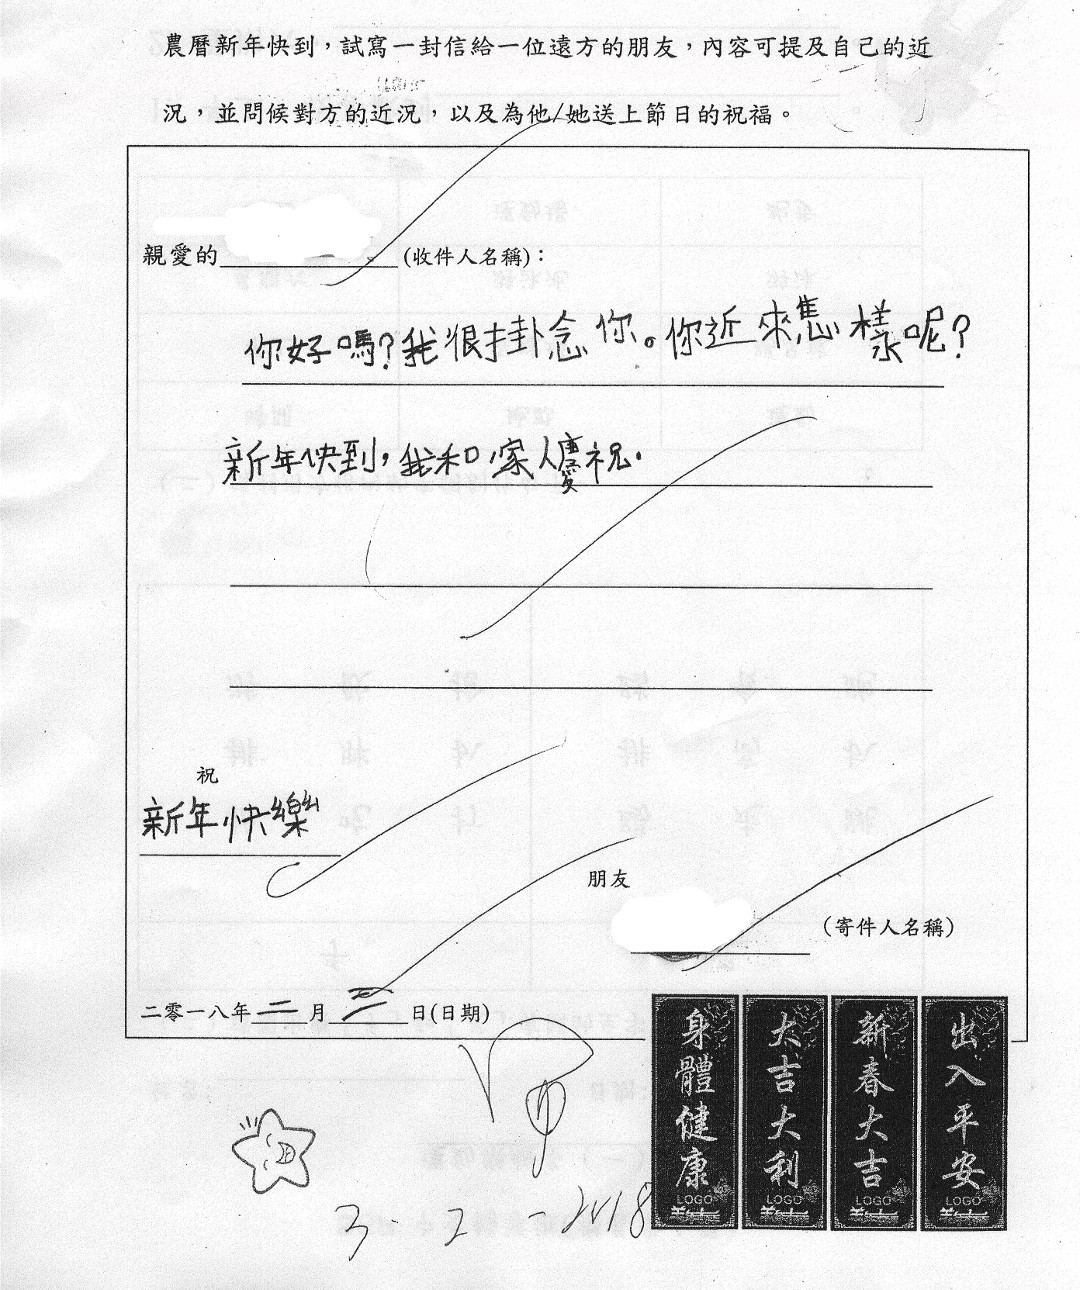 農曆新年快到，試寫一封信給一位遠方的朋友，內容可提及自己的近
況，並問候對方的近況，以及為他/她送上節日的祝福。
親愛的 (收件人名稱)：
你好嗎?我很掛念你。你近來怎樣呢?
新年快到，我和家人慶祝.
祝
新年快樂
朋友
(寄件人名稱)
二零一八年二月三日(日期)
身體健康
大吉大利
新春大吉
出入平安
LOGO
LOGO
LOGO
LOGO
3-2-2018